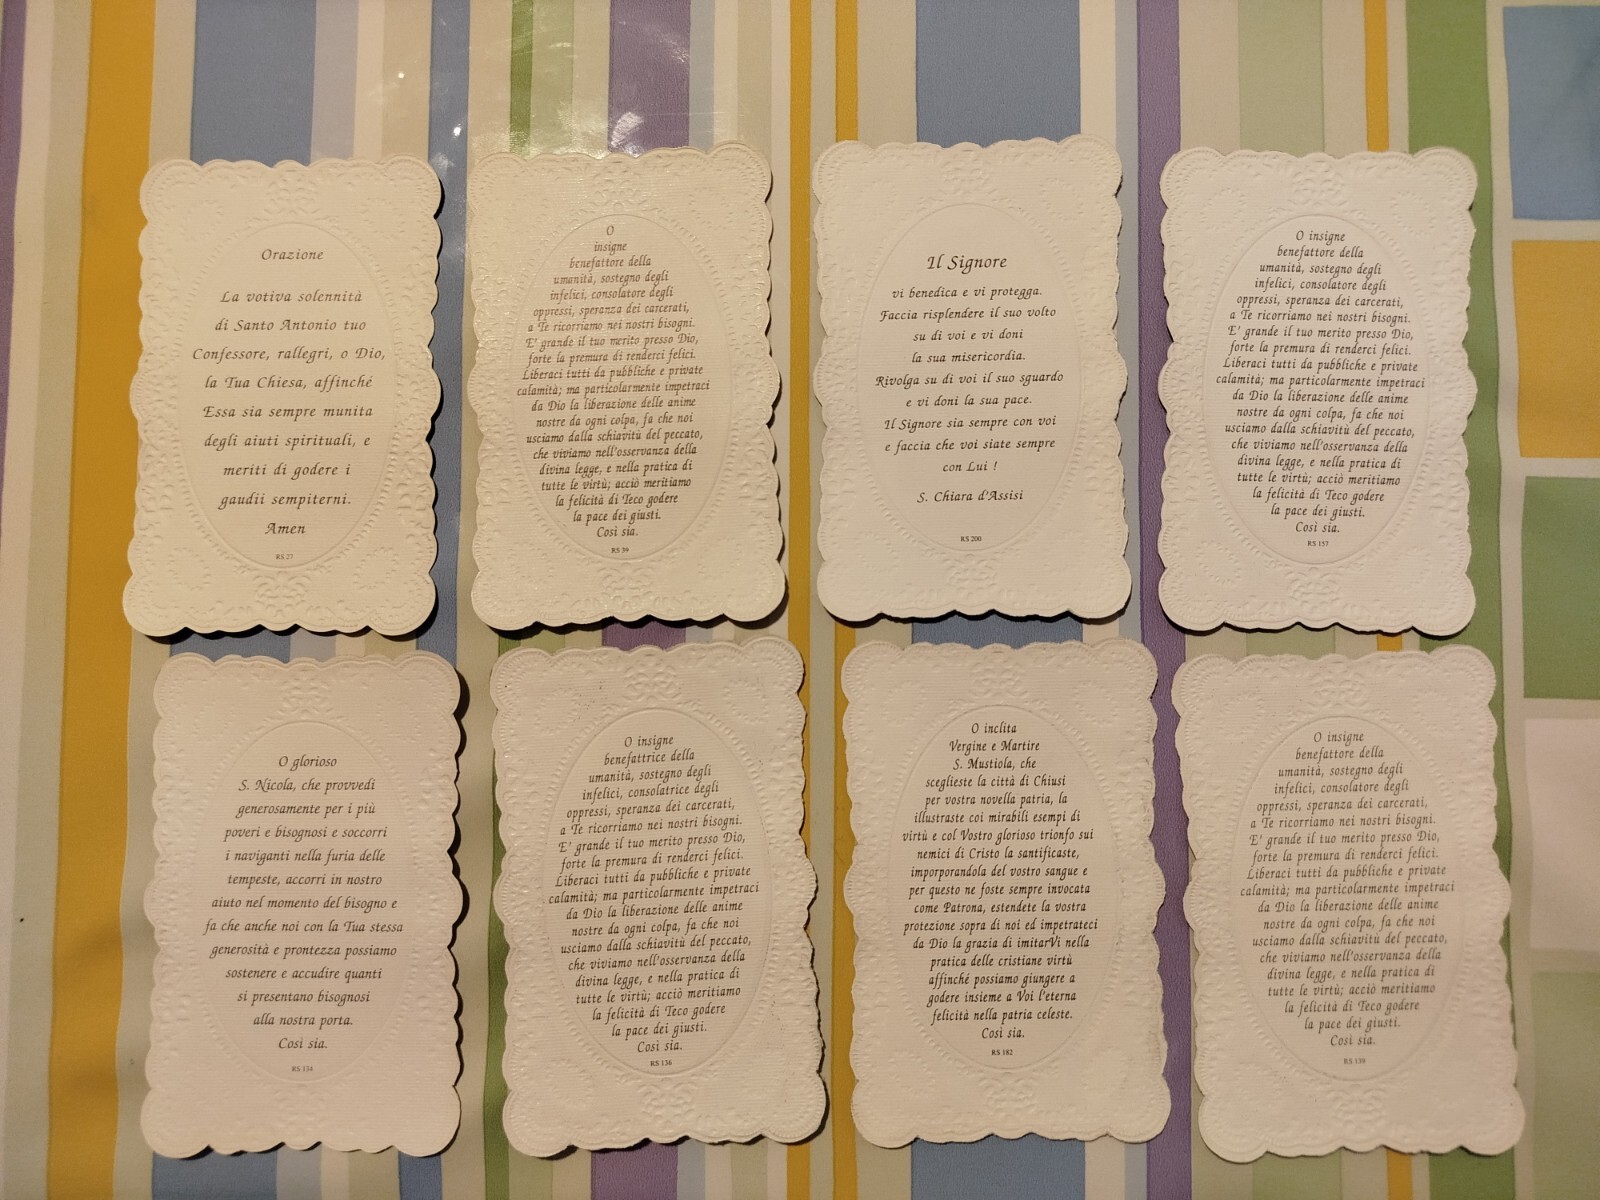 Orazione
La votiva solennità
di Santo Antonio tuo
Confessore, rallegri, o Dio,
la Tua Chiesa, affinché
Essa sia sempre munita
degli aiuti spirituali, e
meriti di godere i
gaudii sempiterni.
Amen
RS 27
O
insigne
benefattore della
umanità, sostegno degli
infelici, consolatore degli
oppressi, speranza dei carcerati,
a Te ricorriamo nei nostri bisogni.
E' grande il tuo merito presso Dio,
forte la premura di renderci felici.
Liberaci tutti da pubbliche e private
calamità; ma particolarmente impetraci
da Dio la liberazione delle anime
nostre da ogni colpa, fa che noi
usciamo dalla schiavitù del peccato,
che viviamo nell'osservanza della
divina legge, e nella pratica di
tutte le virtù; acciò meritiamo
la felicità di Teco godere
la pace dei giusti.
Così sia.
RS 39
Il Signore
vi benedica e vi protegga.
Faccia risplendere il suo volto
su di voi e vi doni
la sua misericordia.
Rivolga su di voi il suo sguardo
e vi doni la sua pace.
Il Signore sia sempre con voi
e faccia che voi siate sempre
con Lui !
S. Chiara d'Assisi
RS 200
O insigne
benefattore della
umanità, sostegno degli
infelici, consolatore degli
oppressi, speranza dei carcerati,
a Te ricorriamo nei nostri bisogni.
E' grande il tuo merito presso Dio,
forte la premura di renderci felici.
Liberaci tutti da pubbliche e private
calamità; ma particolarmente impetraci
da Dio la liberazione delle anime
nostre da ogni colpa, fa che noi
usciamo dalla schiavitù del peccato,
che viviamo nell'osservanza della
divina legge, e nella pratica di
tutte le virtù; acciò meritiamo
la felicità di Teco godere
la pace dei giusti.
Così sia.
RS 157
O glorioso
S. Nicola, che provvedi
generosamente per i più
poveri e bisognosi e soccorri
i naviganti nella furia delle
tempeste, accorri in nostro
aiuto nel momento del bisogno e
fa che anche noi con la Tua stessa
generosità e prontezza possiamo
sostenere e accudire quanti
si presentano bisognosi
alla nostra porta.
Così sia.
RS 134
O insigne
benefattrice della
umanità, sostegno degli
infelici, consolatrice degli
oppressi, speranza dei carcerati,
a Te ricorriamo nei nostri bisogni.
E' grande il tuo merito presso Dio,
forte la premura di renderci felici.
Liberaci tutti da pubbliche e private
calamità; ma particolarmente impetraci
da Dio la liberazione delle anime
nostre da ogni colpa, fa che noi
usciamo dalla schiavitù del peccato,
che viviamo nell'osservanza della
divina legge, e nella pratica di
tutte le virtù; acciò meritiamo
la felicità di Teco godere
la pace dei giusti.
Così sia.
RS 136
O inclita
Vergine e Martire
S. Mustiola, che
sceglieste la città di Chiusi
per vostra novella patria, la
illustraste coi mirabili esempi di
virtù e col Vostro glorioso trionfo sui
nemici di Cristo la santificaste,
imporporandola del vostro sangue e
per questo ne foste sempre invocata
come Patrona, estendete la vostra
protezione sopra di noi ed impetrateci
da Dio la grazia di imitarVi nella
pratica delle cristiane virtù
affinché possiamo giungere a
godere insieme a Voi l'eterna
felicità nella patria celeste.
Così sia.
RS 182
O insigne
benefattore della
umanità, sostegno degli
infelici, consolatore degli
oppressi, speranza dei carcerati,
a Te ricorriamo nei nostri bisogni.
E' grande il tuo merito presso Dio,
forte la premura di renderci felici.
Liberaci tutti da pubbliche e private
calamità; ma particolarmente impetraci
da Dio la liberazione delle anime
nostre da ogni colpa, fa che noi
usciamo dalla schiavitù del peccato,
che viviamo nell'osservanza della
divina legge, e nella pratica di
tutte le virtù; acciò meritiamo
la felicità di Teco godere
la pace dei giusti.
Così sia.
RS 139